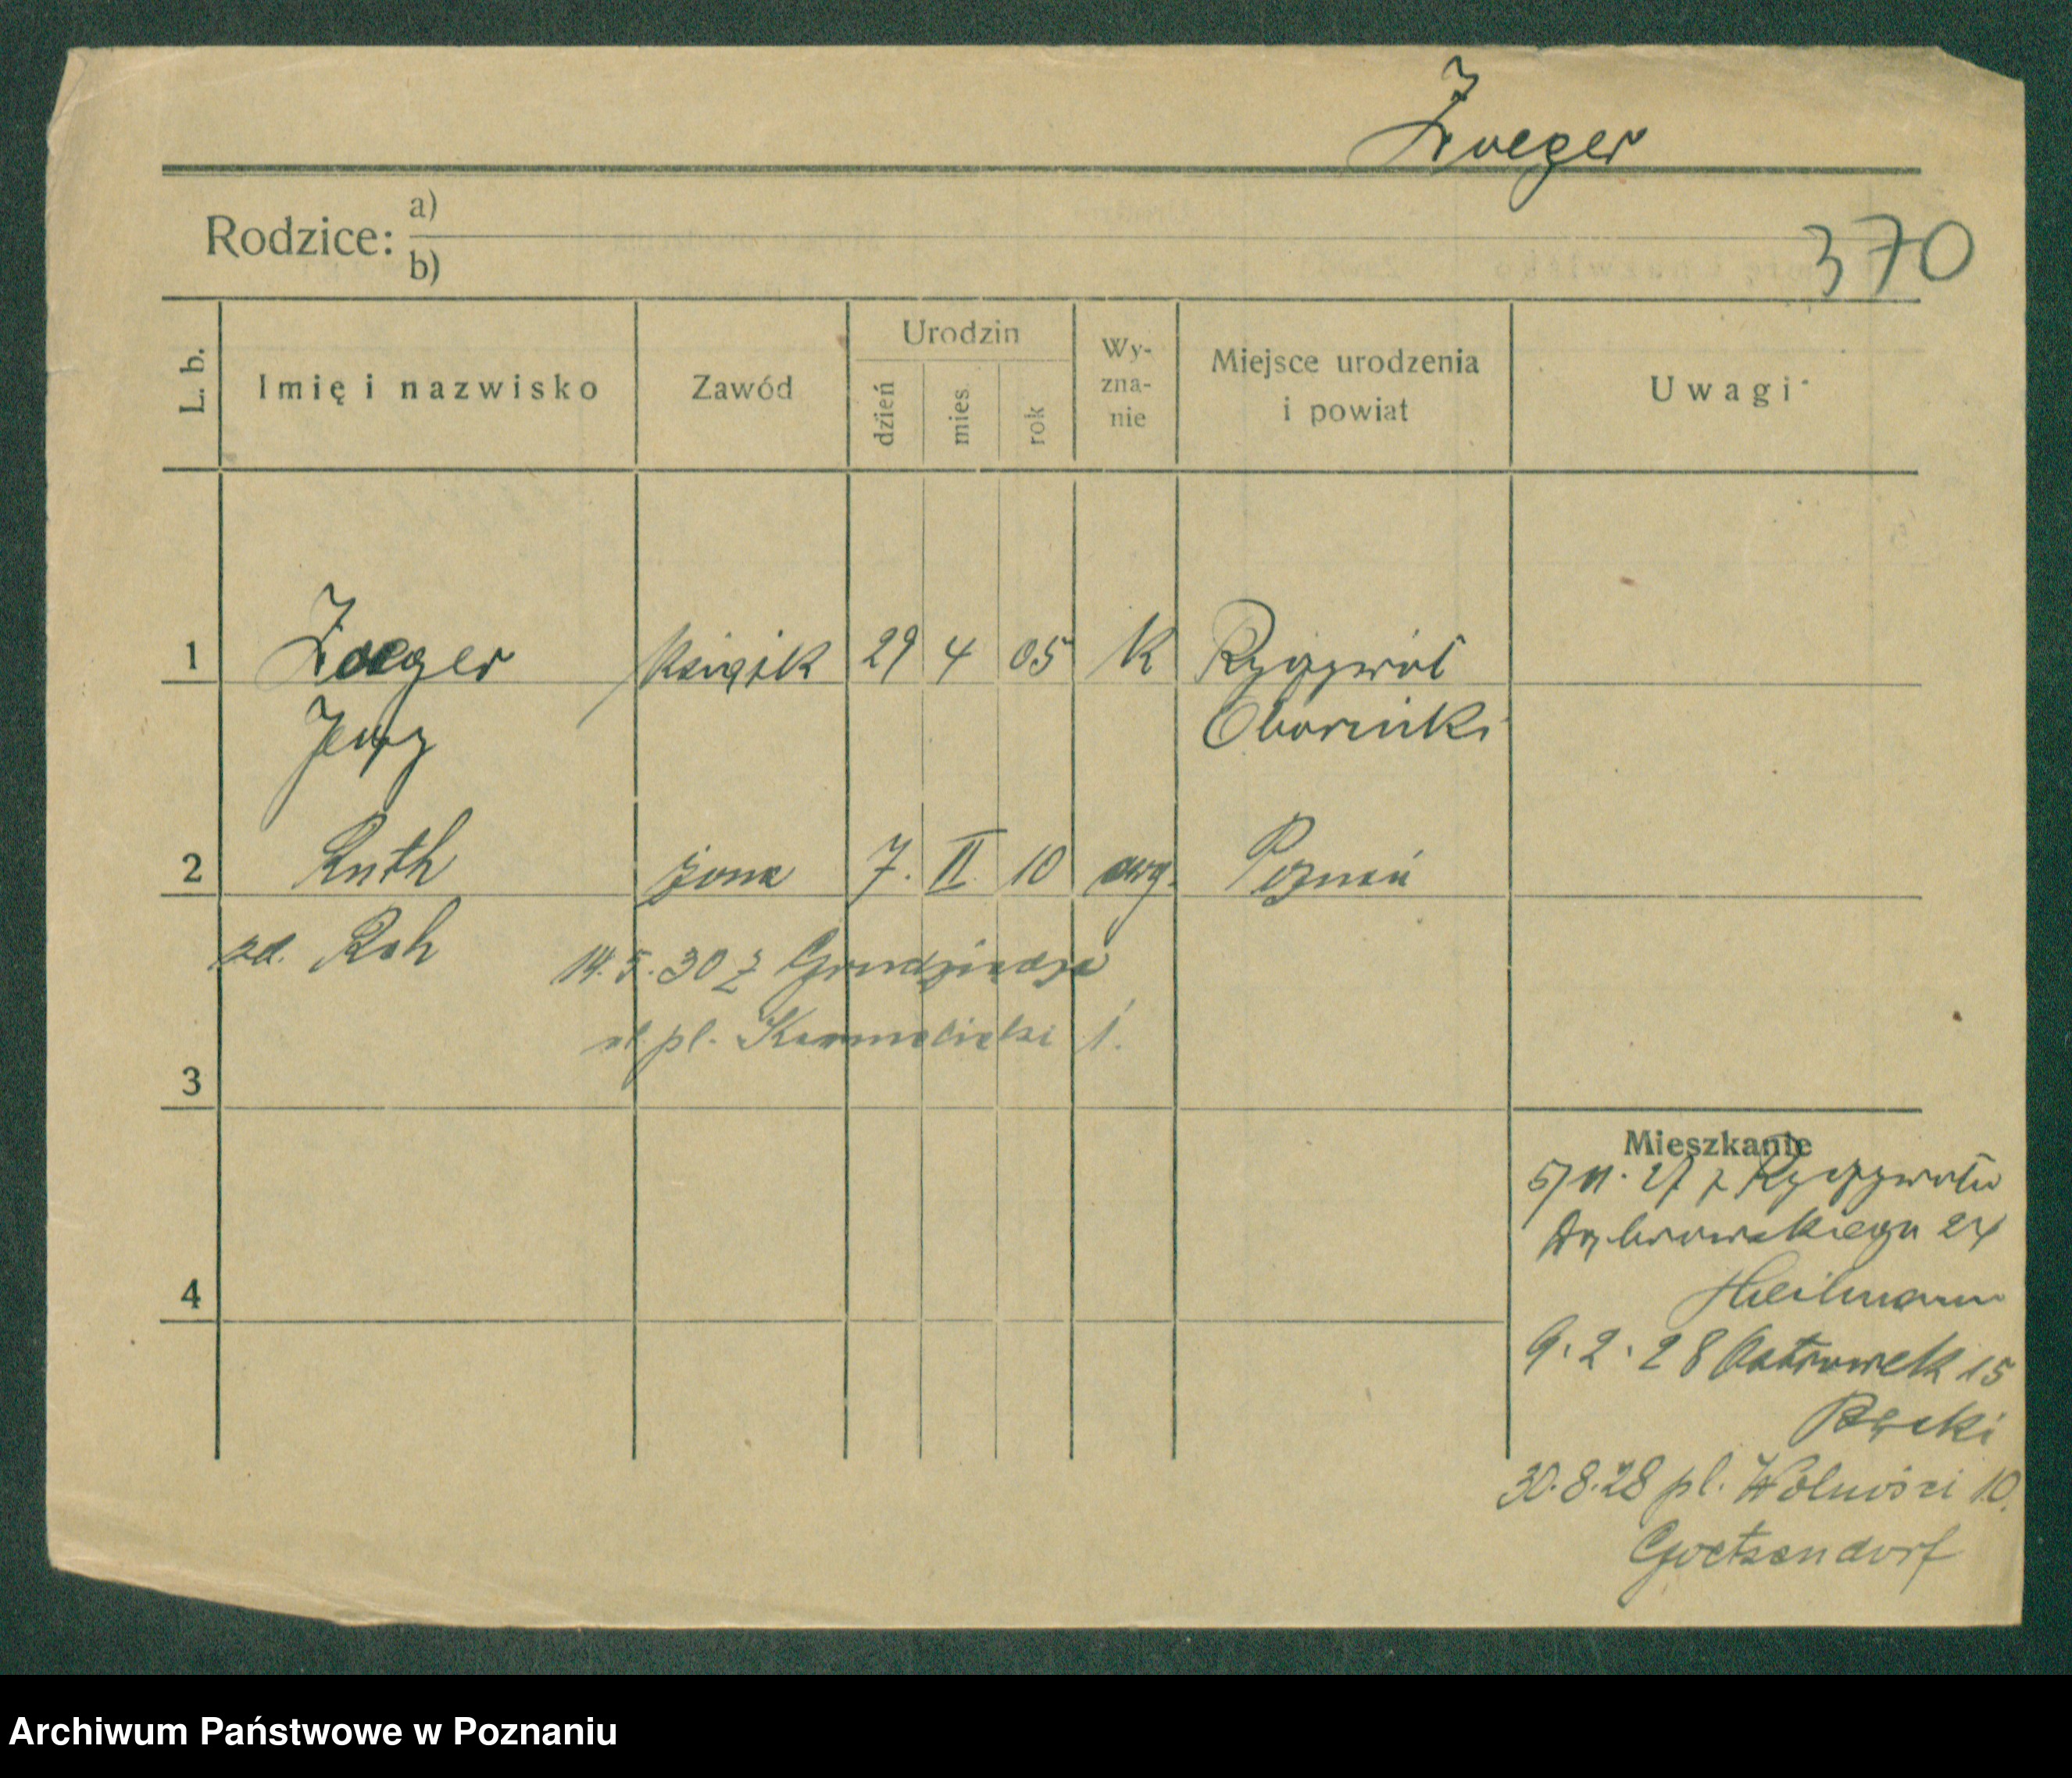 Zoeger
Rodzice: a)
b)
370
L. b.
Imię i nazwisko
Zawód
Urodzin
dzień
mies.
rok
Wy-
zna-
nie
Miejsce urodzenia
i powiat
Uwagi
1 Zoeger 29 4 05 K Ryczywół
Jerzy Obornicki
2 Ruth żona 7. II. 10 ewg. Poznań
zd. 14.5.30 z Grudziądza
pl. Karmelicki 1.
3
Mieszkanie
5/11. 27 z Ryczywołu
Dąbrowskiego 24
4
Heilmann
9.2.28 Ostrówek 15
30.8.28 pl. Wolności 10.
Goetzendorf
Archiwum Państwowe w Poznaniu